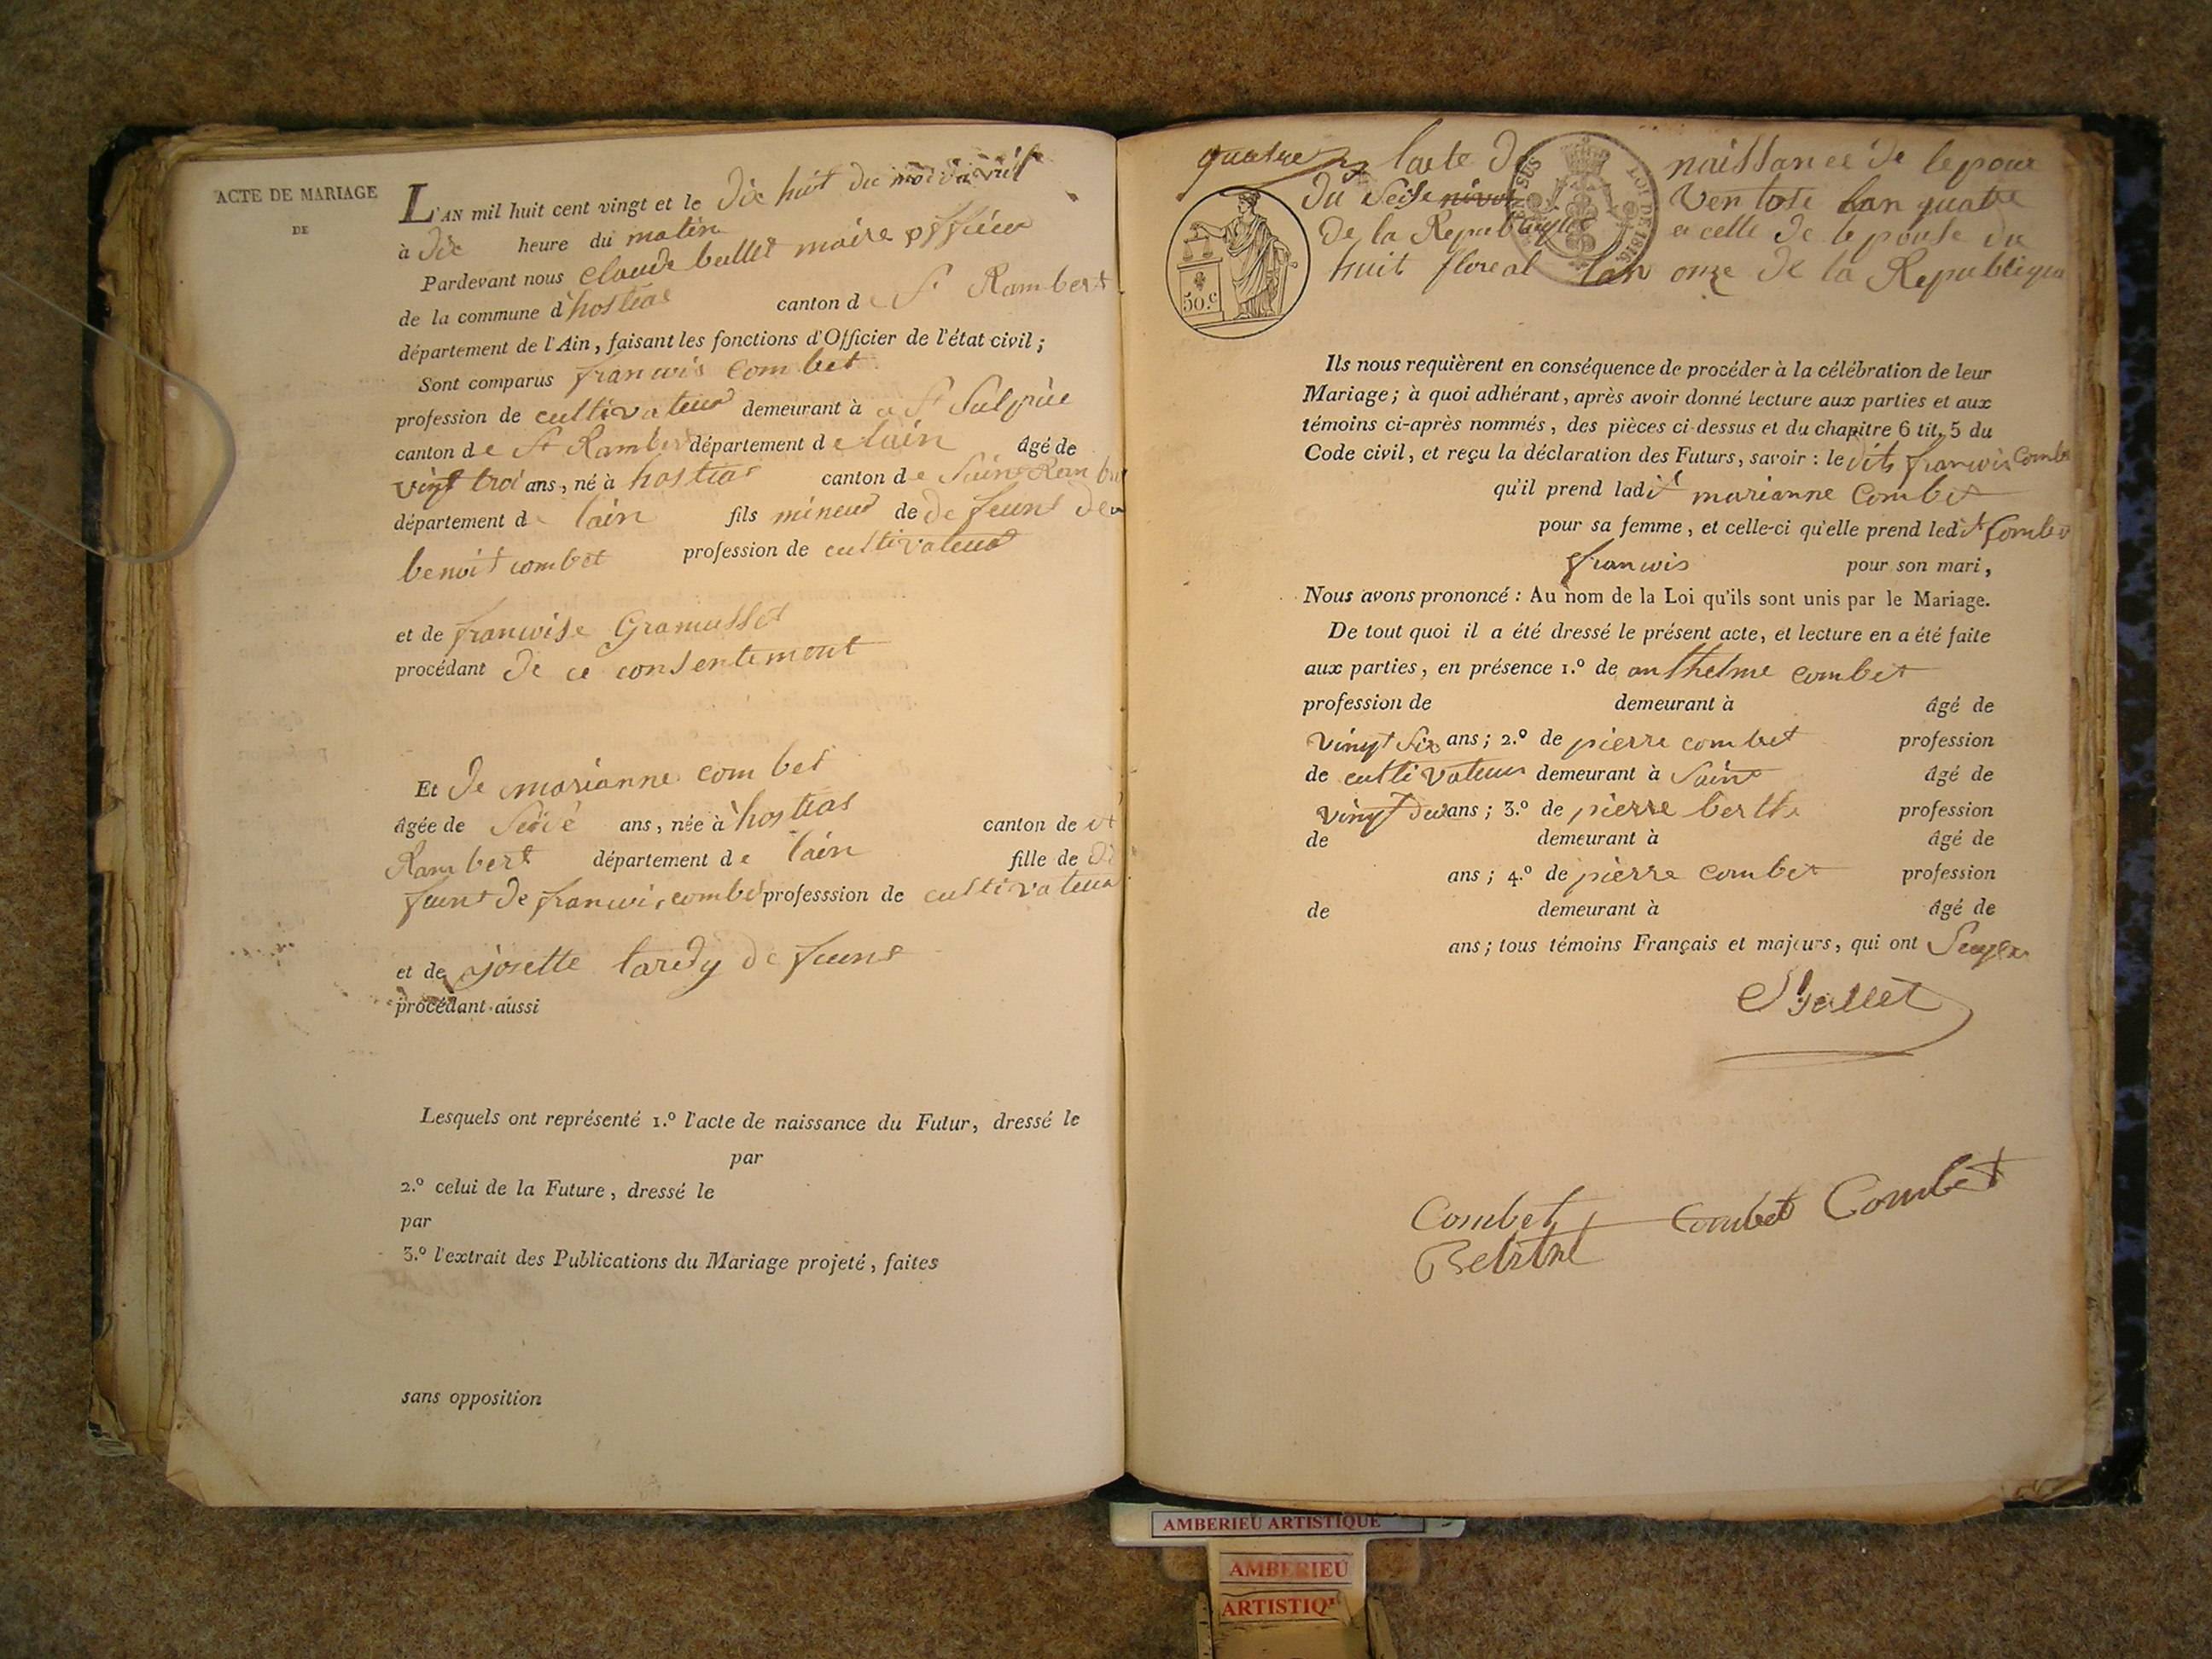 ACTE DE MARIAGE
DE
L'AN mil huit cent vingt et le dix huit du mois d'avril
à dix heure du matin
Pardevant nous claude ballet maire officier
de la commune d'hostias canton de St Rambert
département de l'Ain, faisant les fonctions d'Officier de l'état civil;
Sont comparus francois Combet
profession de cultivateur demeurant à a St Sulpice
canton de St Rambert département de lain âgé de
vingt troi ans, né à hostias canton de Saint Rambert
département de lain fils mineur de defeunt
benoit combet profession de cultivateur
et de francoise Gramusset
procédant de ce consentement
Et de marianne combet
âgée de ans, née à hostias canton de st
Rambert département de lain fille de de
feunt de francois combet professsion de cultivateur
et de josette tardy de feunt
procédant aussi
Lesquels ont représenté 1.º l'acte de naissance du Futur, dressé le
par
2.º celui de la Future, dressé le
par
3.º l'extrait des Publications du Mariage projeté, faites
sans opposition
quatre lacte de naissance de lepoux
du seise nivose Ventose lan quatre
de la Republique et celle de lepouse du
huit floreal lan onze de la Republique
LOI DE 1816
50.c
Ils nous requièrent en conséquence de procéder à la célébration de leur
Mariage; à quoi adhérant, après avoir donné lecture aux parties et aux
témoins ci-après nommés, des pièces ci-dessus et du chapitre 6 tit. 5 du
Code civil, et reçu la déclaration des Futurs, savoir: le dit francois Combet
qu'il prend ladit marianne Combet
pour sa femme, et celle-ci qu'elle prend ledit Combet
francois pour son mari,
Nous avons prononcé: Au nom de la Loi qu'ils sont unis par le Mariage.
De tout quoi il a été dressé le présent acte, et lecture en a été faite
aux parties, en présence 1.º de anthelme combet
profession de demeurant à âgé de
vingt six ans; 2.º de pierre combet profession
de cultivateur demeurant à Saint âgé de
vingt deux ans; 3.º de pierre berthe profession
de demeurant à âgé de
ans; 4.º de pierre combet profession
de demeurant à âgé de
ans; tous témoins Français et majeurs, qui ont
Ballet
Combet Combet Combet
AMBERIEU ARTISTIQUE
AMBERIEU
ARTISTIQ